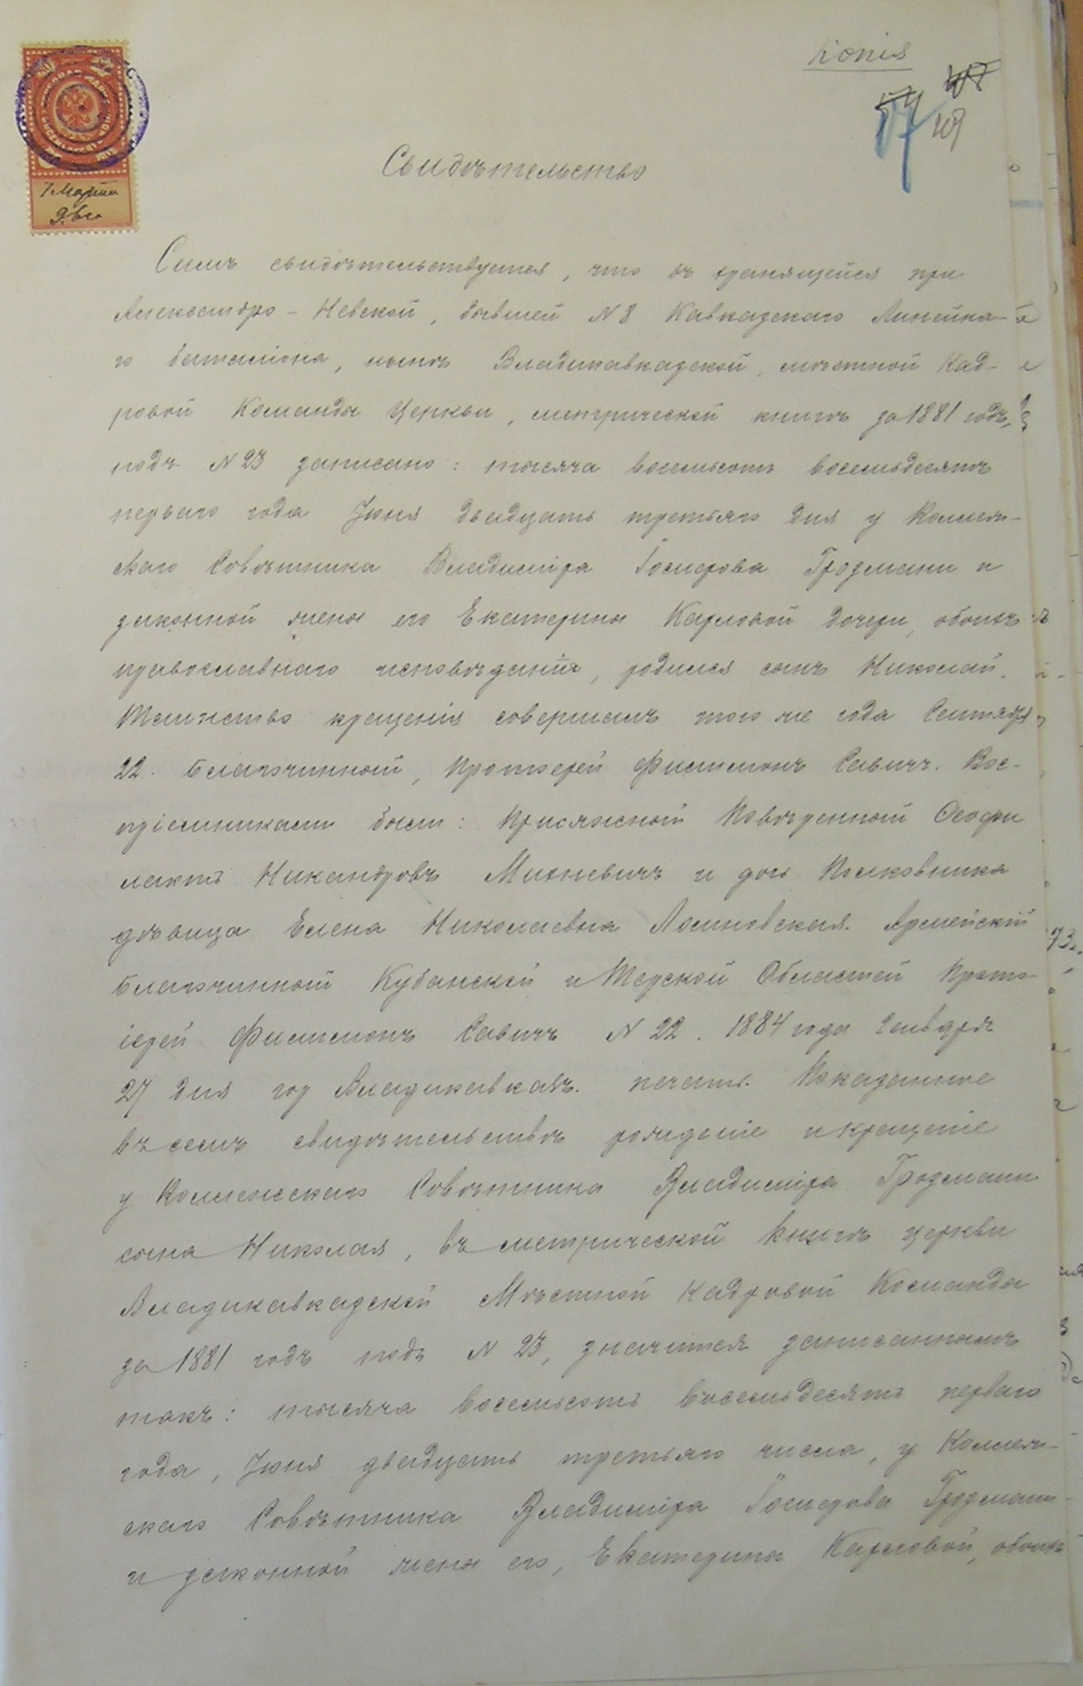 копія
107
57
109
7 Марта
Свидѣтельство
Симъ свидѣтельствуется, что въ хранящейся при
Александро-Невской, бывшей № 8 Кавказскаго Линейна-
го баталіона, нынѣ Владикавказской, мѣстной Кад-
ровой Команды Церкви, метрической книгѣ за 1881 годъ,
подъ № 23 записано: тысяча восемьсотъ восемьдесятъ
перваго года Іюня двадцать третьяго дня у Коллеж-
скаго Совѣтника Владиміра Іосифова Гродзманъ и
законной жены его Екатерины Карловой дочери, обоихъ
православнаго исповѣданія, родился сынъ Николай.
Таинство крещенія совершалъ того же года Сентября
22. Благочинный, Протоіерей Филимонъ Савичъ. Вос-
пріемниками были: Присяжной Повѣренный Ѳеофи
лактъ Никандровъ Михневичъ и дочь Полковника
дѣвица Елена Николаевна Лосиновская. Армейскій
Благочинный Кубанской и Терской Областей Прото-
іерей Филимонъ Савичъ № 22. 1884 года Генваря
27 дня гор Владикавказъ. печать. Показанное
въ семъ свидѣтельствѣ рожденіе и крещеніе
у Коллежскаго Совѣтника Владиміра Гродзманъ
сына Николая, въ метрической книгѣ церкви
Владикавказской Мѣстной Кадровой Команды
за 1881 годъ подъ № 23, значится записаннымъ
такъ: тысяча восемьсотъ восемьдесятъ перваго
года, Іюня двадцать третьяго числа, у Коллеж-
скаго Совѣтника Владиміра Іосифова Гродзманъ
и законной жены его, Екатерины Карловой, обоихъ